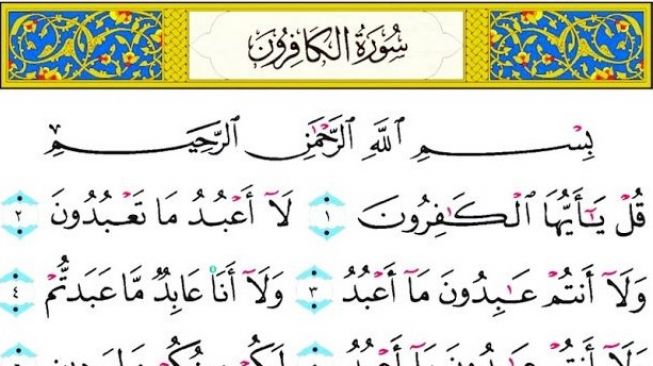 سُورَةُ الكَافِرُونَ
بِسْمِ ٱللَّهِ ٱلرَّحْمَٰنِ ٱلرَّحِيمِ
قُلْ يَٰٓأَيُّهَا ٱلْكَٰفِرُونَ ١ لَآ أَعْبُدُ مَا تَعْبُدُونَ ٢
وَلَآ أَنتُمْ عَٰبِدُونَ مَآ أَعْبُدُ ٣ وَلَآ أَنَا۠ عَابِدٌ مَّا عَبَدتُّمْ ٤
وَلَآ أَنتُمْ عَٰبِدُونَ مَآ أَعْبُدُ لَكُمْ دِينُكُمْ وَلِيَ دِينِ